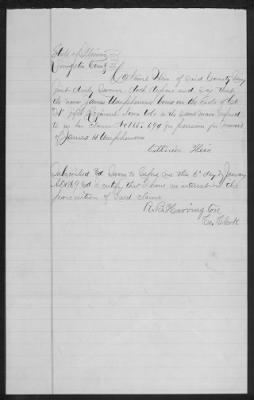 State of Illinois
County
Catharine Hess of said County being
first duly Sworn doth depose and say that
the name James Umphenour borne on the Rolls of Co
" " 29th Regiment Iowa Vols is the same man refered
to in her claim No 188.690 for pension for services
of James H Umphenour
Catharine Hess
Subscribed and Sworn to before me this 6th day of January
and I certify that I have no interest in the
prosecution of said claim
R. B. Harrington
Co. Clerk